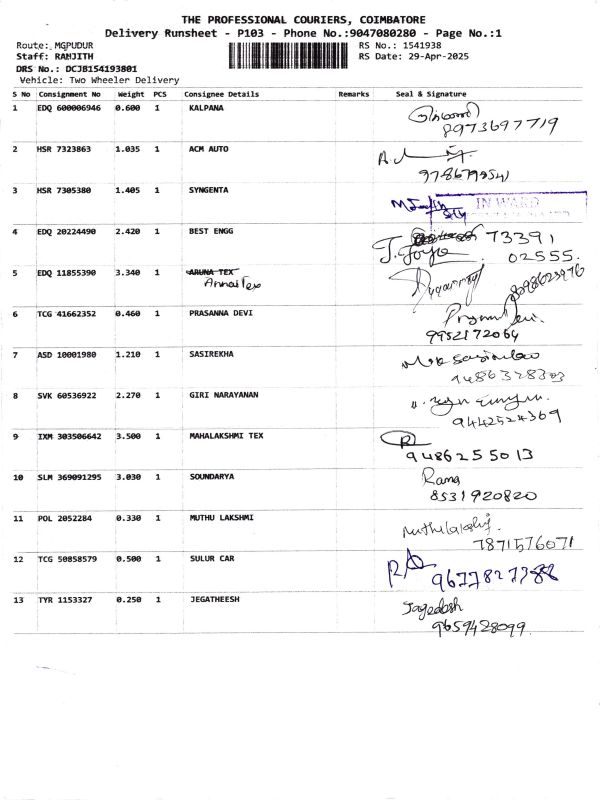 THE PROFESSIONAL COURIERS, COIMBATORE
Delivery Runsheet - P103 - Phone No.:9047080280 - Page No.:1
Route: MGPUDUR RS No.: 1541938
Staff: RANJITH RS Date: 29-Apr-2025
DRS No.: DCJB154193801
Vehicle: Two Wheeler Delivery
S No Consignment No Weight PCS Consignee Details Remarks Seal & Signature
1 EDQ 600006946 0.600 1 KALPANA
8973697719
2 HSR 7323863 1.035 1 ACM AUTO
3 HSR 7305380 1.405 1 SYNGENTA
IN WARD
4 EDQ 20224490 2.420 1 BEST ENGG 73391
02555.
5 EDQ 11855390 3.340 1 ARUNA TEX
Annai Tex
6 TCG 41662352 0.460 1 PRASANNA DEVI
9952172064
7 ASD 10001980 1.210 1 SASIREKHA
9486328303
8 SVK 60536922 2.270 1 GIRI NARAYANAN
9442524369
9 IXM 303506642 3.500 1 MAHALAKSHMI TEX
9486255013
10 SLM 369091295 3.030 1 SOUNDARYA Rama
8531920820
11 POL 2052284 0.330 1 MUTHU LAKSHMI
7871576071
12 TCG 50858579 0.500 1 SULUR CAR
13 TYR 1153327 0.250 1 JEGATHEESH Jagedesh
9659428099